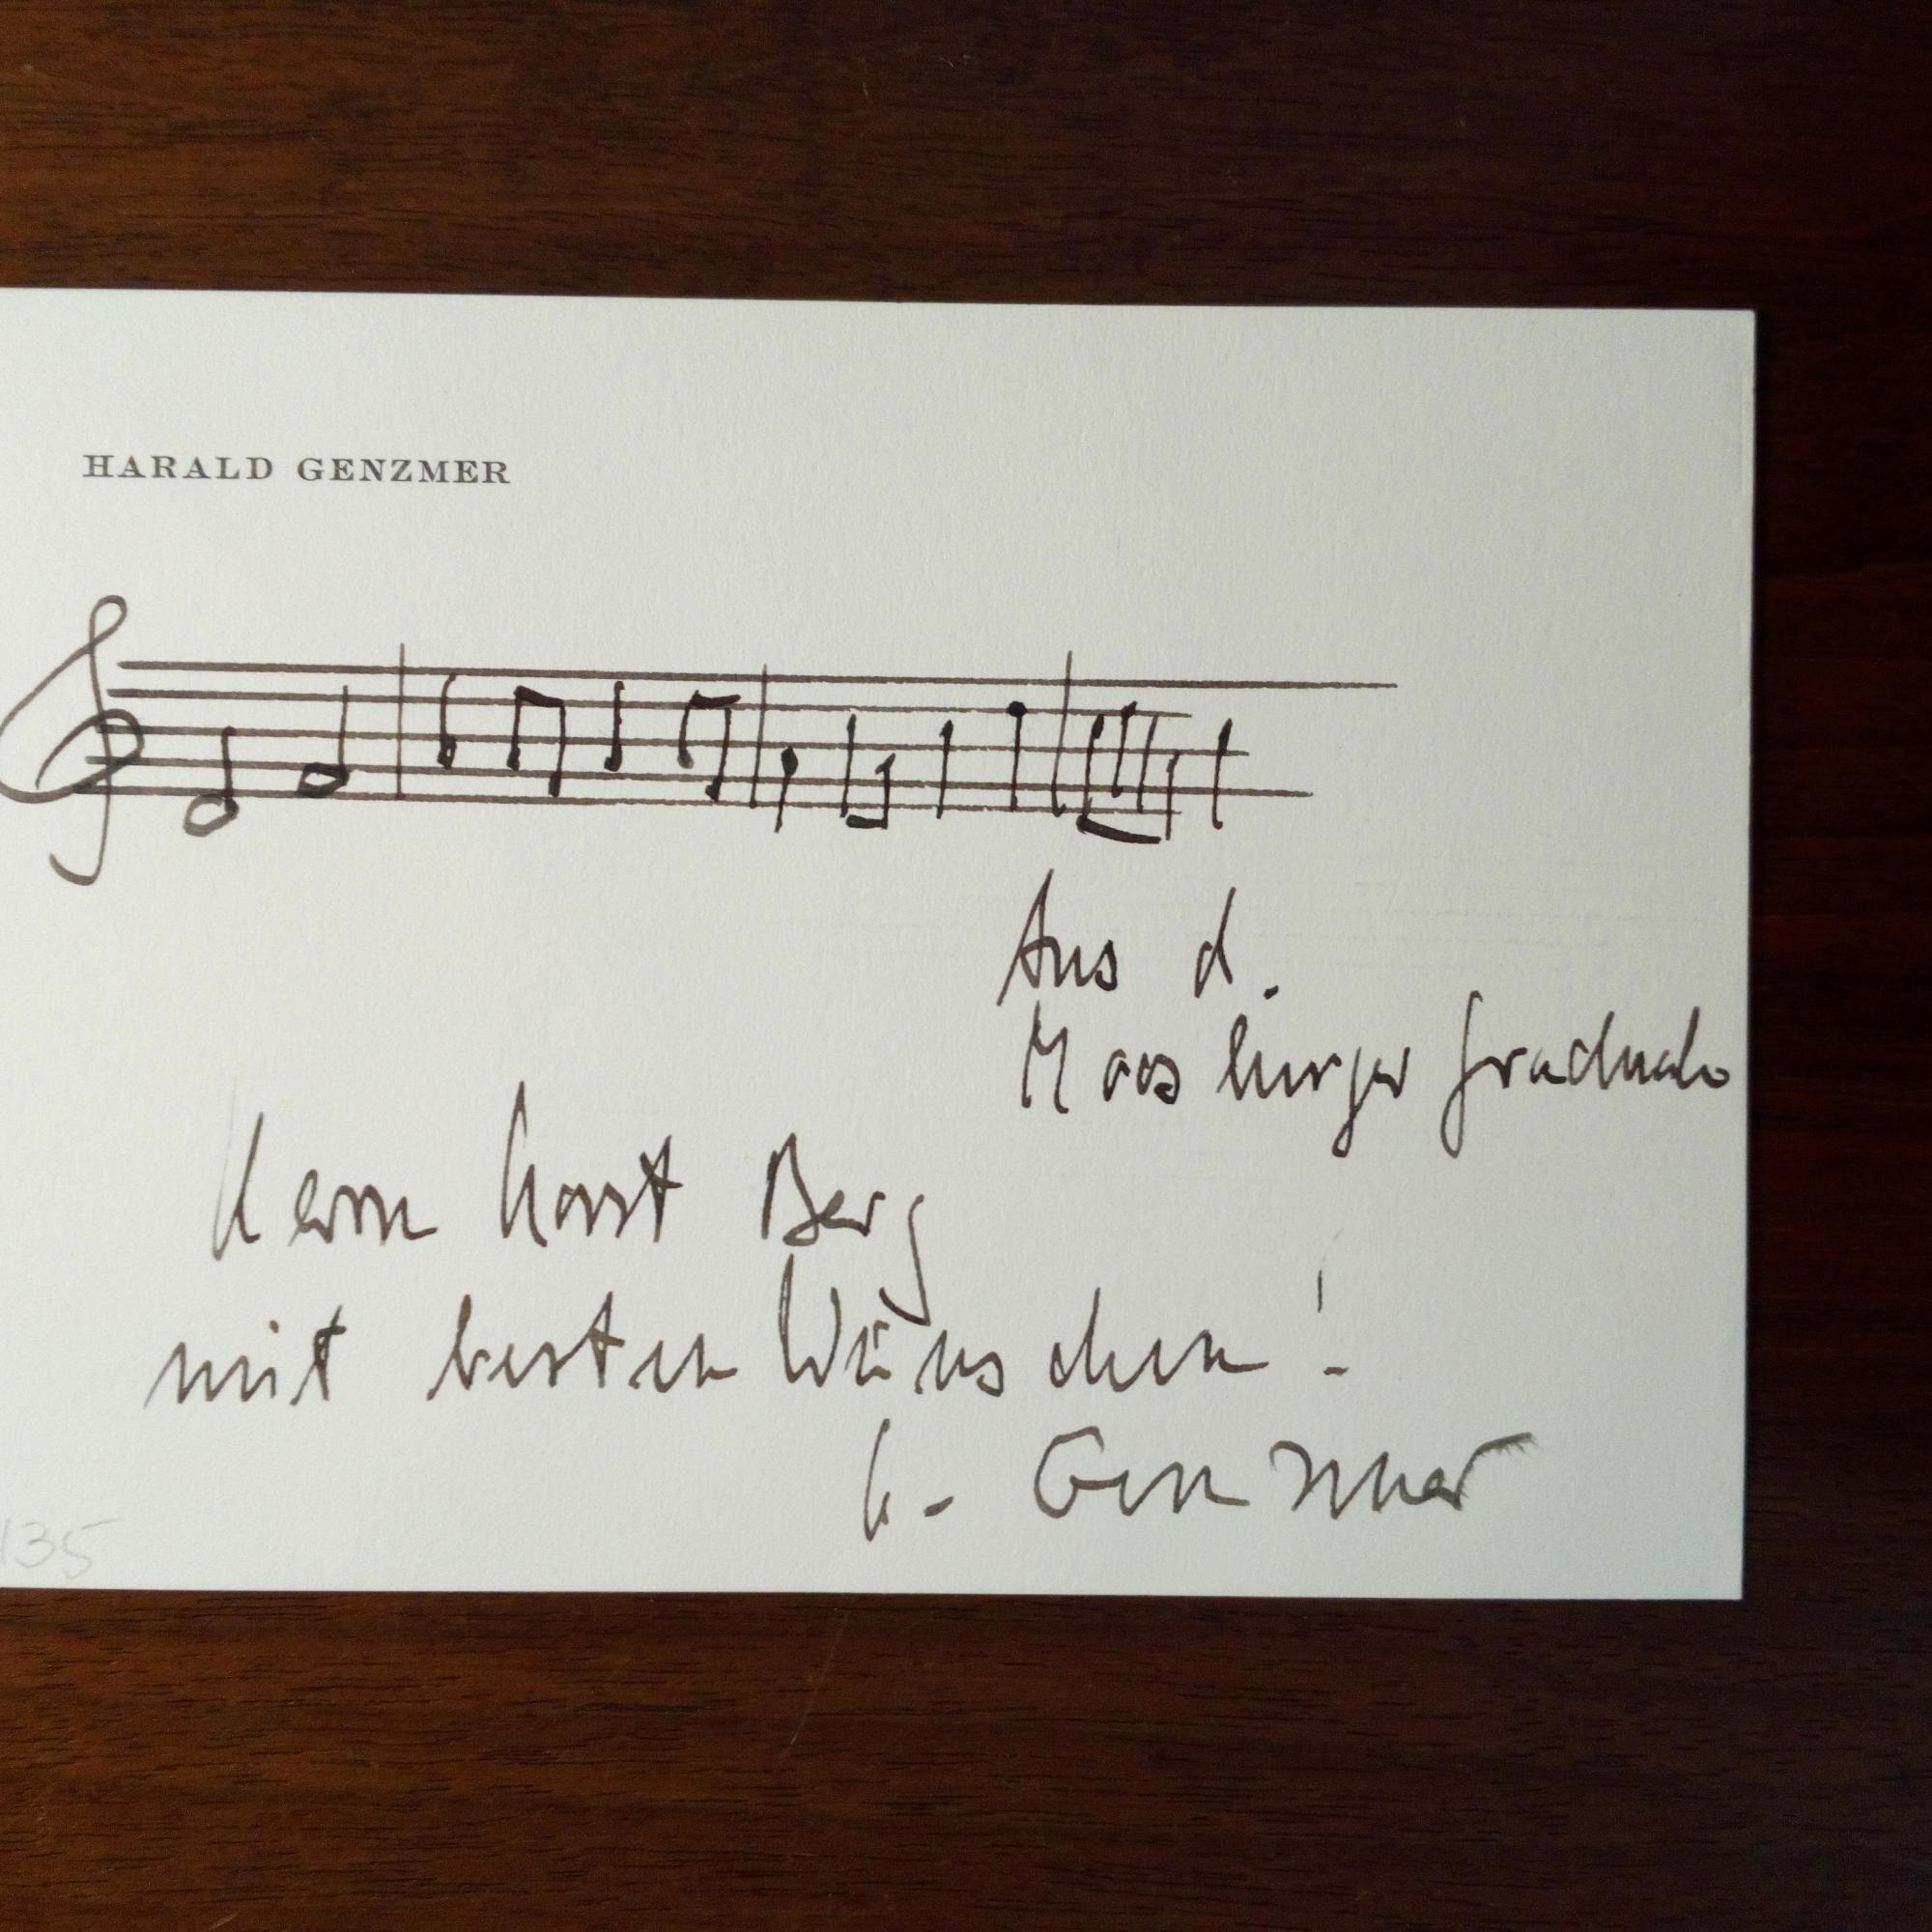 HARALD GENZMER
Aus d.
Moosburger Graduale
Herrn Horst Berg
mit besten Wünschen!
H. Genzmer
135